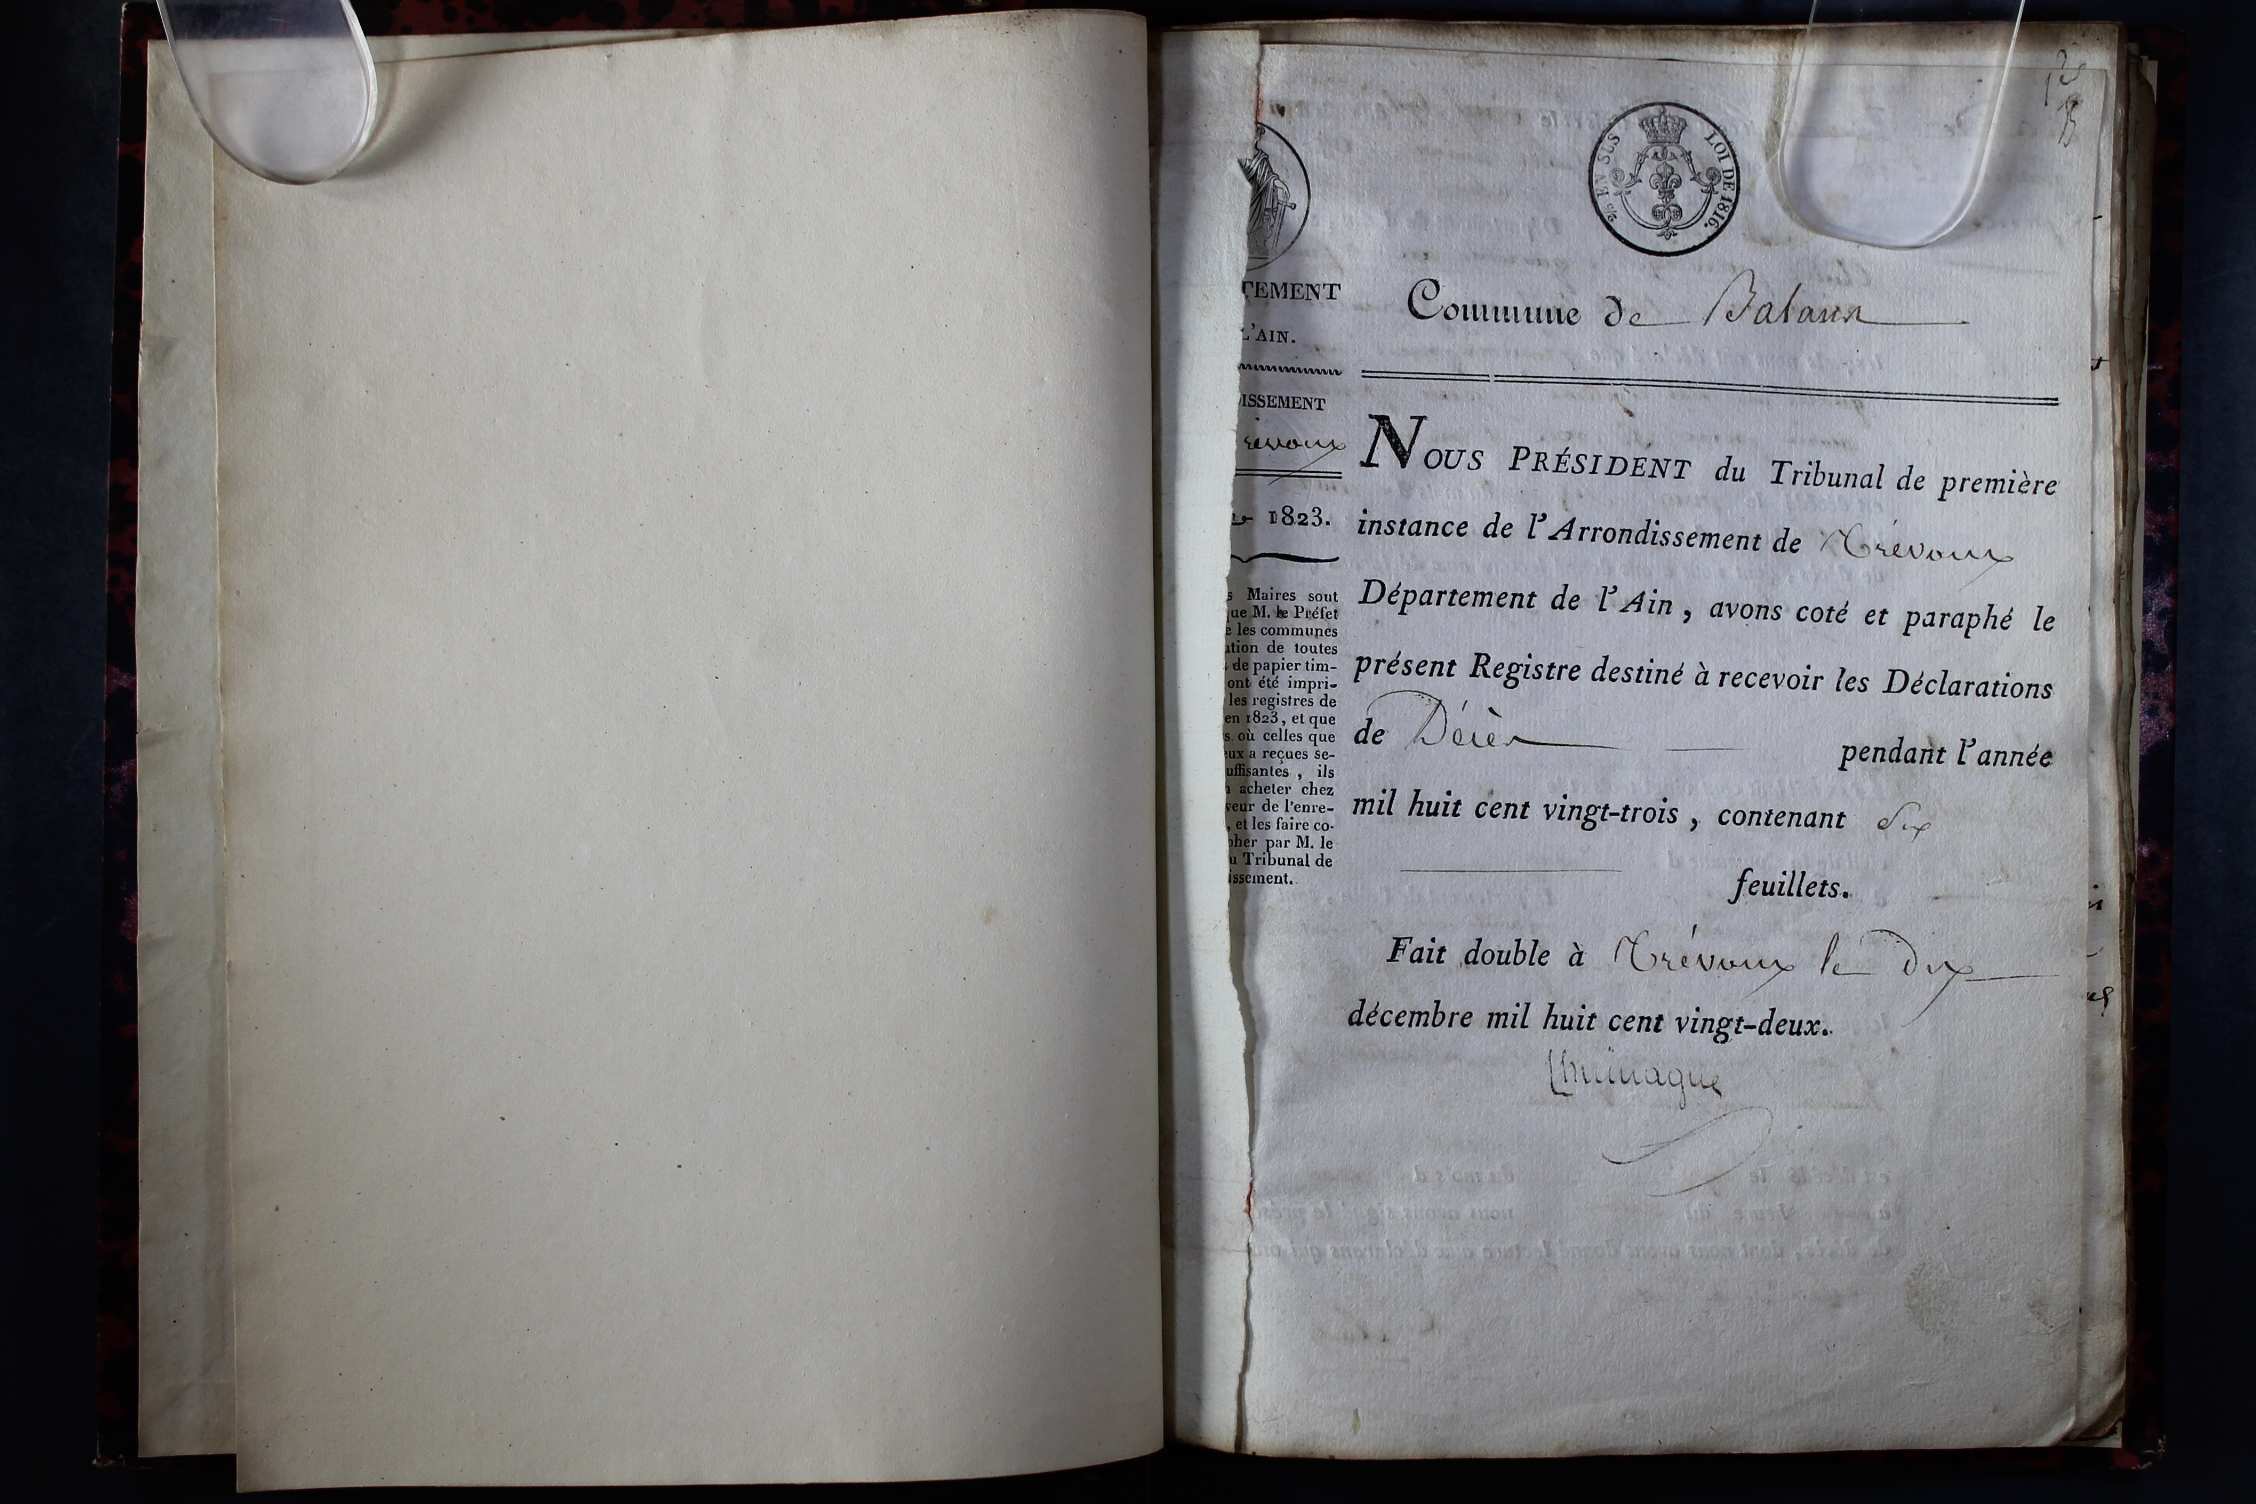 25 EN SUS LOI DE 1816.
TEMENT
L'AIN.
ISSEMENT
révoux
1823.
s Maires sont
que M. le Préfet
e les communes
ation de toutes
de papier tim-
ont été impri-
les registres de
en 1823, et que
s où celles que
eux a reçues se-
uffisantes, ils
acheter chez
veur de l'enre-
, et les faire co-
pher par M. le
u Tribunal de
issement.
Commune de Balann
NOUS PRÉSIDENT du Tribunal de première
instance de l'Arrondissement de Trévoux
Département de l'Ain, avons coté et paraphé le
présent Registre destiné à recevoir les Déclarations
de Décès pendant l'année
mil huit cent vingt-trois, contenant Six
feuillets.
Fait double à Trévoux le dix
décembre mil huit cent vingt-deux.